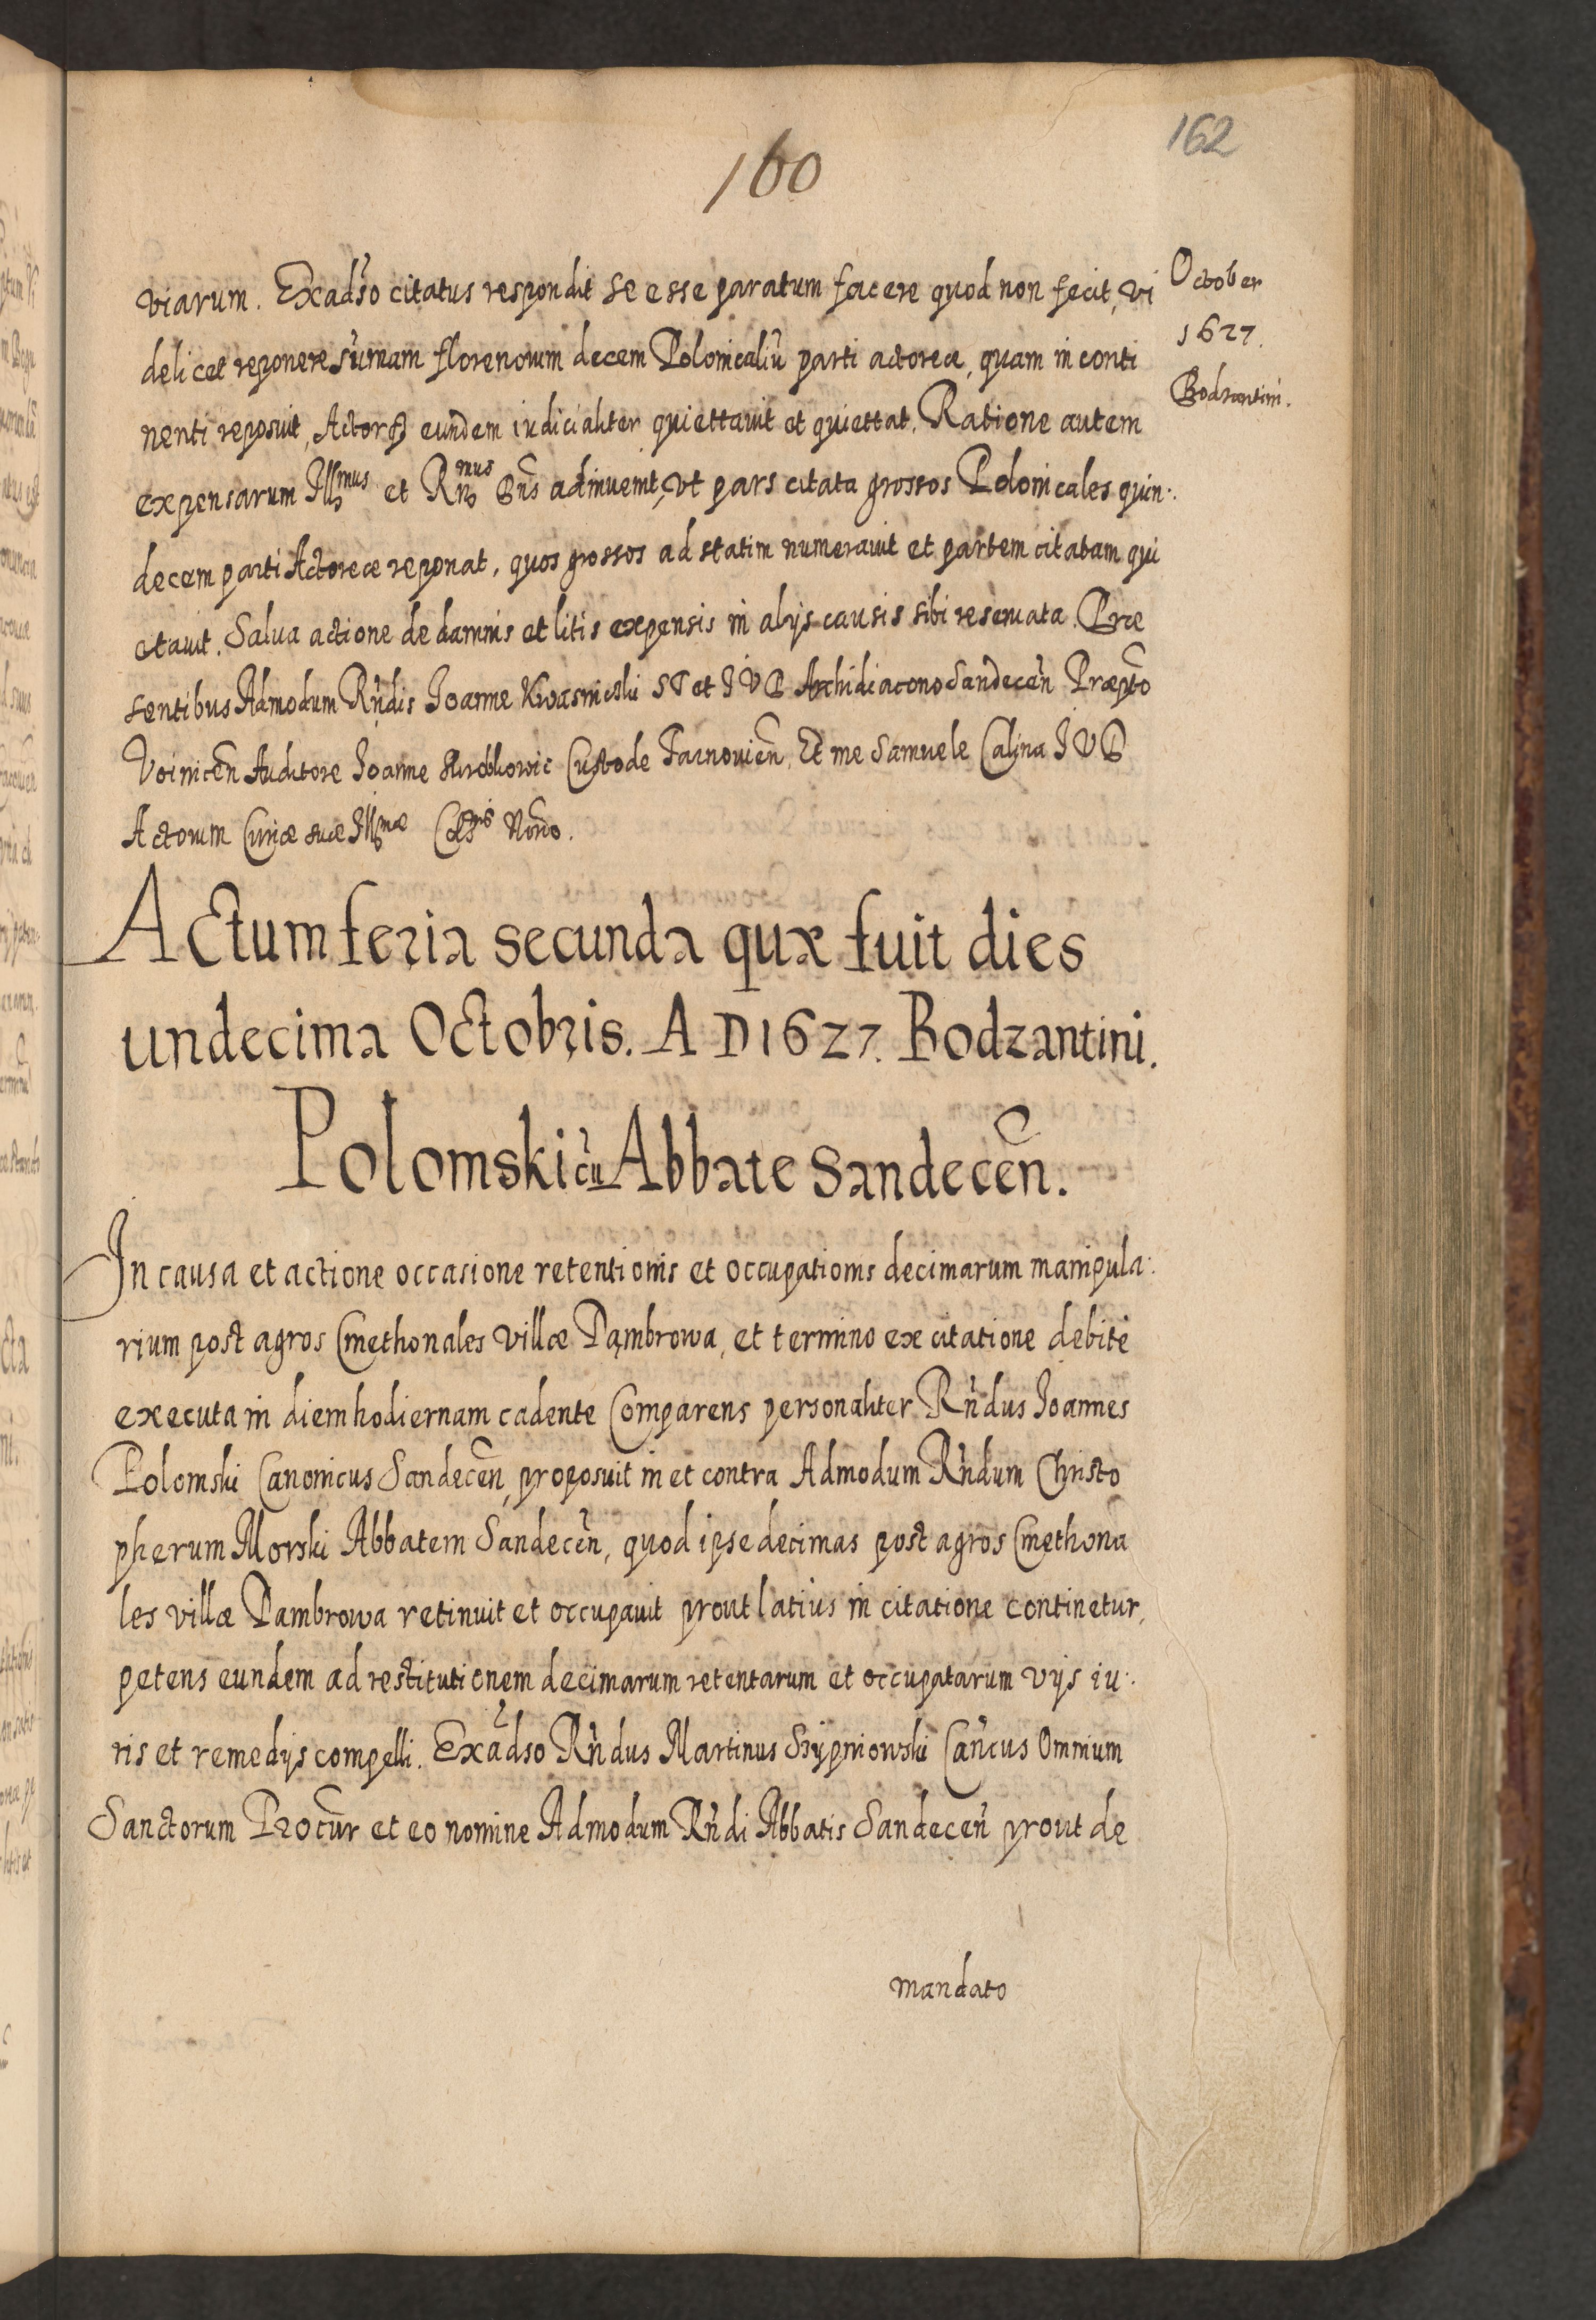 160
162
October
1627.
Bodzantini.
viarum. Exadso citatus respondit se esse paratum facere quod non fecit, vi
delicet reponere sumam florenorum decem Polonicaliu parti actoreæ, quam in conti
nenti reposuit, Actorq eundem iudicialiter quiettavit et quiettat. Ratione autem
expensarum Illmus et Rnmus Dns adinvenit, vt pars citata grossos Polonicales quin:
decem parti Actoreæ reponat, quos grossos ad statim numeravit et partem citatam qui
etavit. Salua actione de damnis et litis expensis in alijs causis sibi reseruata. Præ
sentibus Admodum Rndis Joanne Kwasnicski ST et IVD Archidiacono Sandecen Præpto
Voinicen Auditore Joanne Custode Tarnouien, Et me Samuele Calina IVD
Actorum Curiæ suæ Illmæ Celsnis Norio.
Actum feria secunda quæ fuit dies
undecima Octobris. A D 1627. Bodzantini.
Polomski cu Abbate Sandecen.
In causa et actione occasione retentionis et occupationis decimarum manipula:
rium post agros Cmethonales villæ Dąmbrowa, et termino ex citatione debite
executa in diem hodiernam cadente Comparens personaliter Rndus Joannes
Polomski Canonicus Sandecen, proposuit in et contra Admodum Rndum Christo
pherum Morski Abbatem Sandecen, quod ipse decimas post agros Cmethona
les villæ Dambrowa retinuit et occupauit prout latius in citatione continetur,
petens eundem ad restitutionem decimarum retentarum et occupatarum vijs iu:
ris et remedijs compelli. Exadso Rndus Martinus Szypniowski Cancus Omnium
Sanctorum Procur et eo nomine Admodum Rndi Abbatis Sandecen prout de
mandato